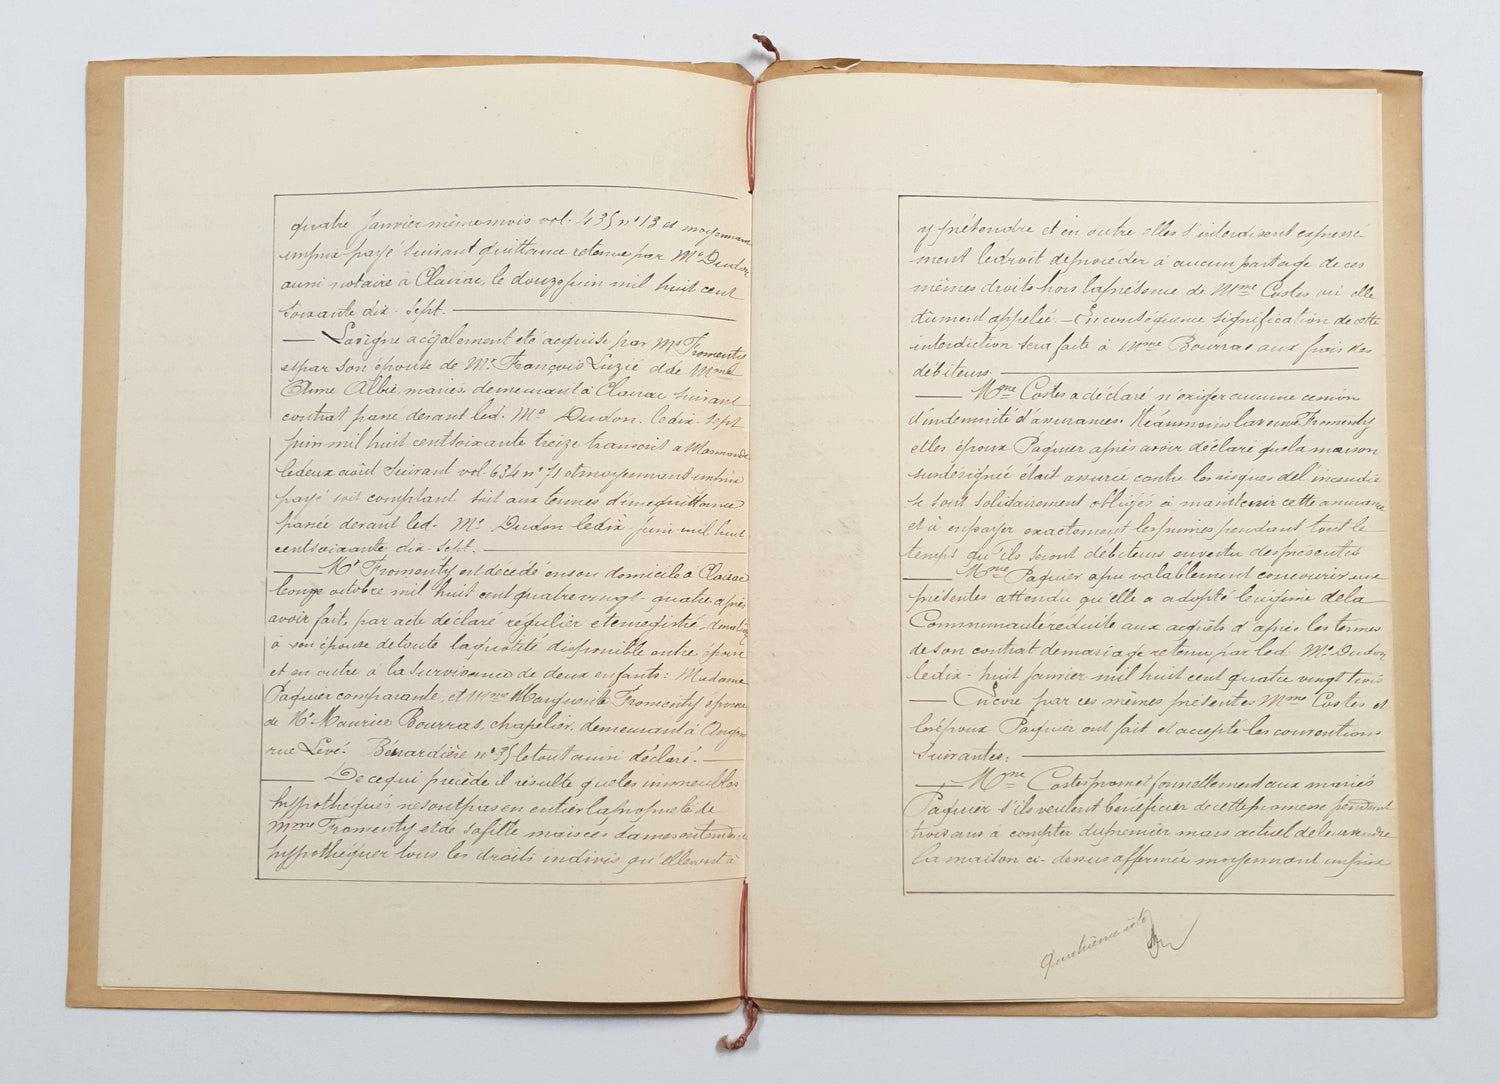 quatre Janvier même mois vol. 435 n° 13 et moyennant
un prix payé suivant quittance retenue par Me Dudon
aussi notaire à Clairac, le douze juin mil huit cent
soixante dix-sept.
— Lavigne a également été acquise par Mr Fromenty
et par son épouse de Mr François Luzié et de Mme
Albie, mariés, demeurant à Clairac suivant
contrat passé devant led. Me Dudon, le dix-sept
juin mil huit cent soixante treize transcrit à Marmande
le deux août suivant vol. 634 n° 71 et moyennant un prix
payé soit comptant soit aux termes d'une quittance
passée devant led. Me Dudon le dix juin mil huit
cent soixante dix-sept.
— Mr Fromenty est décédé en son domicile à Clairac
le onze octobre mil huit cent quatre vingt-quatre après
avoir fait, par acte déclaré régulier et enregistré, donation
à son épouse de toute la quotité disponible entre époux
et en outre à la survivance de deux enfants: Madame
Paquier comparante, et Mme Marguerite Fromenty épouse
de Mr Maurice Bourras, chapelier, demeurant à Angers
rue Levé- Bénardière n° 35 le tout ainsi déclaré.
— De ce qui précède il résulte que les immeubles
hypothéqués ne sont pas en entier la propriété de
Mme Fromenty et de sa fille mais ces dames entendent
hypothéquer tous les droits indivis qu'elles ont à
y prétendre et en outre elles s'interdisent expressé-
ment le droit de procéder à aucun partage de ces
mêmes droits hors la présence de Mme Costes ou elle
dûment appelée. — En conséquence signification de cette
interdiction sera faite à Mme Bourras aux frais des
débiteurs.
— Mme Costes a déclaré n'exiger aucune cession
d'indemnité d'assurances. Néanmoins la veuve Fromenty
et les époux Paquier après avoir déclaré que la maison
susdésignée était assurée contre les risques de l'incendie
se sont solidairement obligés à maintenir cette assurance
et à en payer exactement les primes pendant tout le
temps qu'ils seront débiteurs en vertu des présentes
— Mme Paquier a pu valablement concourir aux
présentes attendu qu'elle a adopté le régime de la
Communauté réduite aux acquêts d'après les termes
de son contrat de mariage retenu par led. Me Dudon
le dix-huit janvier mil huit cent quatre vingt trois
— Encore par ces mêmes présentes Mme Costes et
les époux Paquier ont fait et accepté les conventions
suivantes:
— Mme Costes promet formellement aux mariés
Paquier s'ils veulent bénéficier de cette promesse pendant
trois ans à compter du premier mars actuel de leur vendre
la maison ci-dessus affermée moyennant un prix
Quatrième rôle